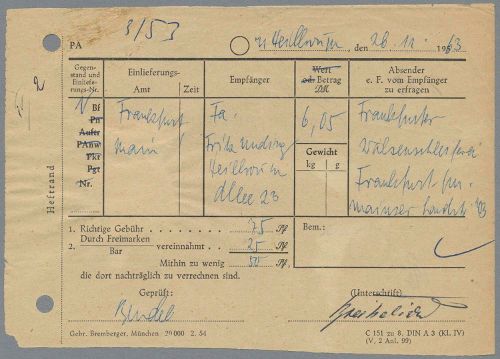 8/53
PA Heilbronn, den 26.11. 1953
Gegenstand und Einlieferungs-Nr.
Einlieferungs-
Amt Zeit
Empfänger
Wert od. Betrag DM
Absender e. F. vom Empfänger zu erfragen
Bf
Pn
Auftr
PAnw
Pkt
Pgt
Nr.
Frankfurt
Main
Fa.
Fritz
Heilbronn
Allee 23
6,05
Gewicht
kg g
Frankfurter
Walzenschleiferei
Frankfurt
Mainzer Landstr
Heftrand
2
1. Richtige Gebühr 75 Pf
2. Durch Freimarken
Bar
vereinnahmt 25 Pf
Mithin zu wenig 50 Pf
die dort nachträglich zu verrechnen sind.
Bem.:
Geprüft:
(Unterschrift)
Gebr. Bremberger, München 20 000 2. 54
C 151 zu 8. DIN A 3 (KL. IV)
(V, 2 Anl. 99)